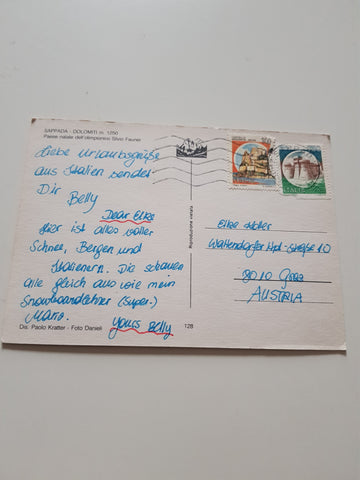 SAPPADA - DOLOMITI m. 1250
Paese natale dell'olimpionico Silvio Fauner
Liebe Urlaubsgrüße
aus Italien sendet
Dir Belly
Dear Elke
Hier ist alles voller
Schnee, Bergen und
Italienern. Die schauen
alle gleich aus wie mein
Snowboardlehrer (Super-)
Mario.
Yours Belly
Dis. Paolo Kratter - Foto Danieli
128
Riproduzione vietata
Elke
Waltendorfer Hpt-Straße 10
8010 Graz
AUSTRIA